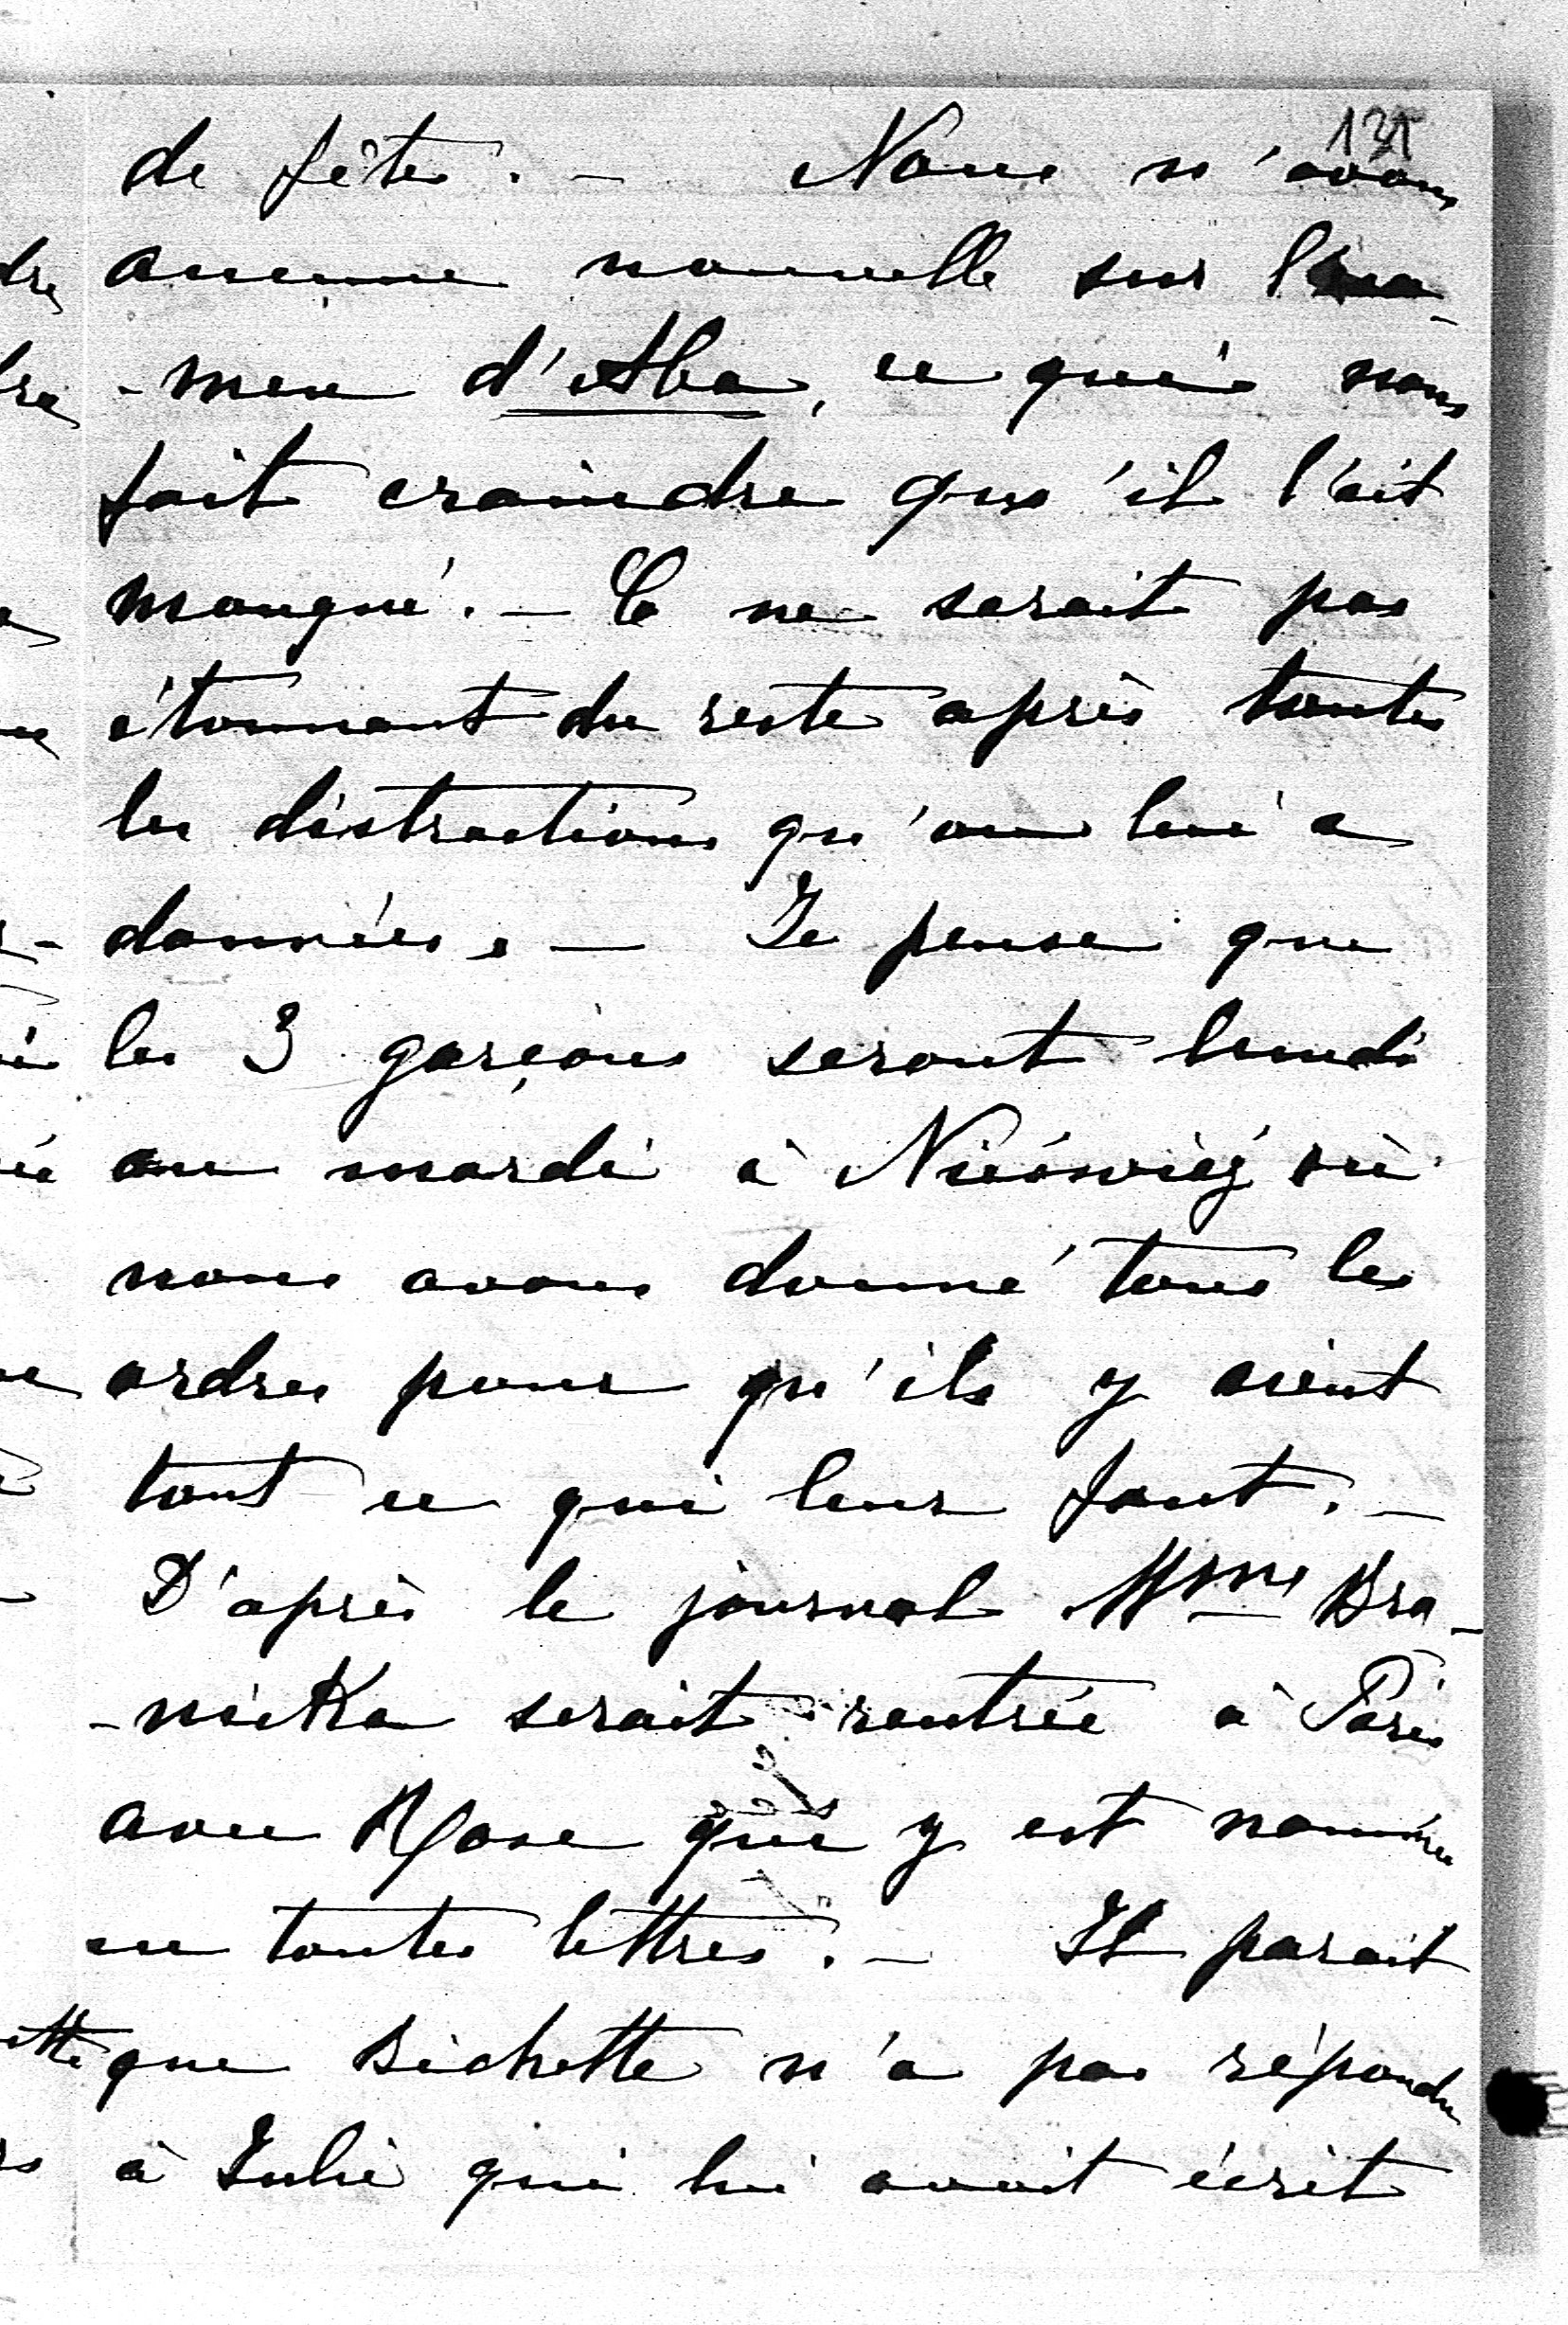 131
de fêtes. — Nous n'avons
aucune nouvelle sur l'exa-
-men d'Aba, ce qui nous
fait craindre qu'il l'ait
manqué. — Ce ne serait pas
étonnant du reste après toutes
les distractions qu'on lui a
données. — Je pense que
les 3 garçons seront lundi
ou mardi à Nieświéź où
nous avons donné tous les
ordres pour qu'ils y aient
tout ce qui leur faut. —
D'après le journal Mme Bra-
-nicka serait rentrée à Paris
avec Rose qui y est nommée
en toutes lettres. — Il parait
que Bichette n'a pas répondu
à Julie qui lui avait écrit